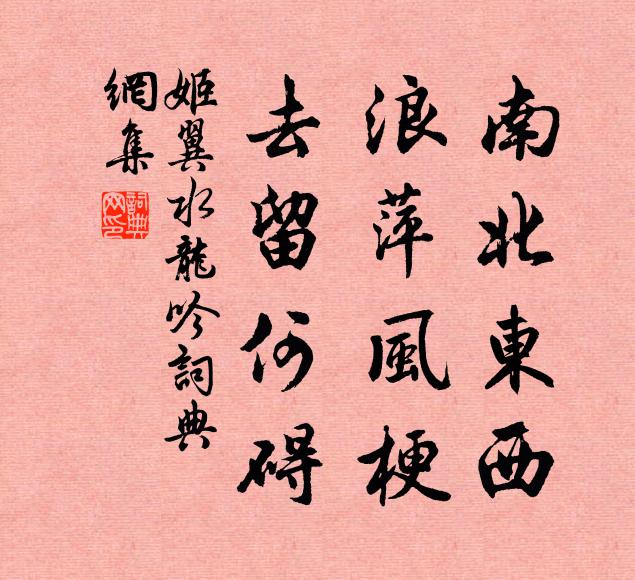 南北東西
浪萍風梗
去留何碍
姬翼水龍吟詞典
網集
詞典网印